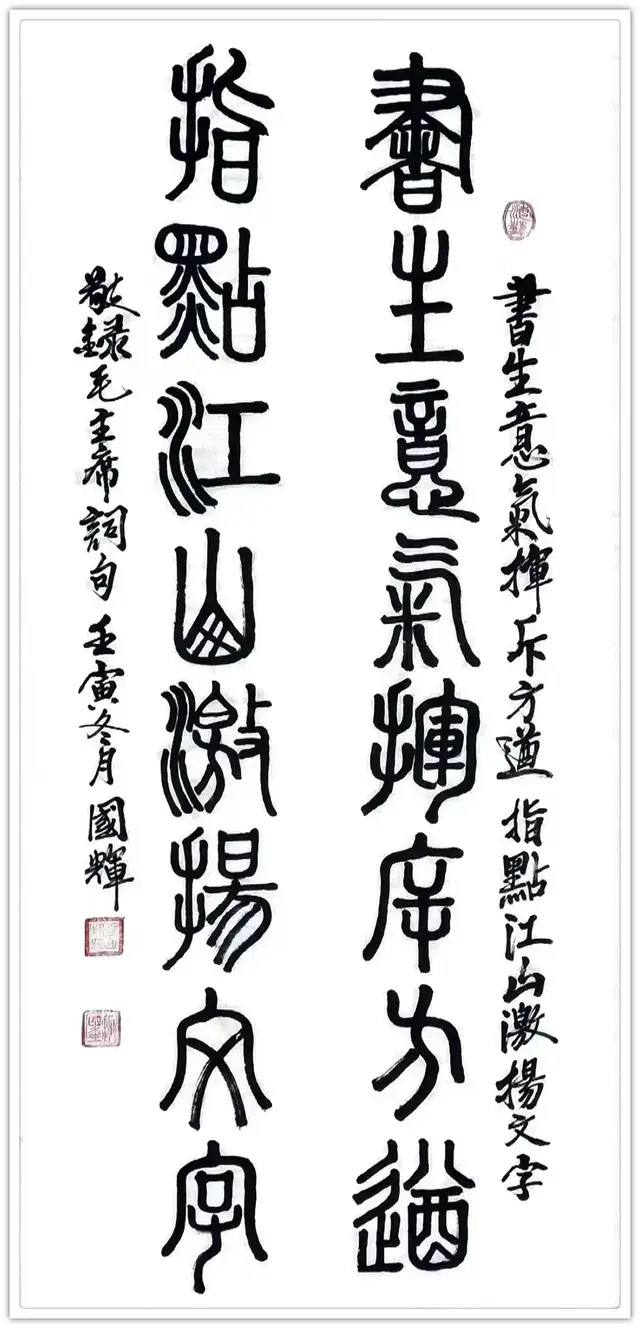 書生意氣揮斥方遒 指點江山激揚文字
書生意氣揮斥方遒
指點江山激揚文字
敬録毛主席詞句 壬寅冬月 國輝